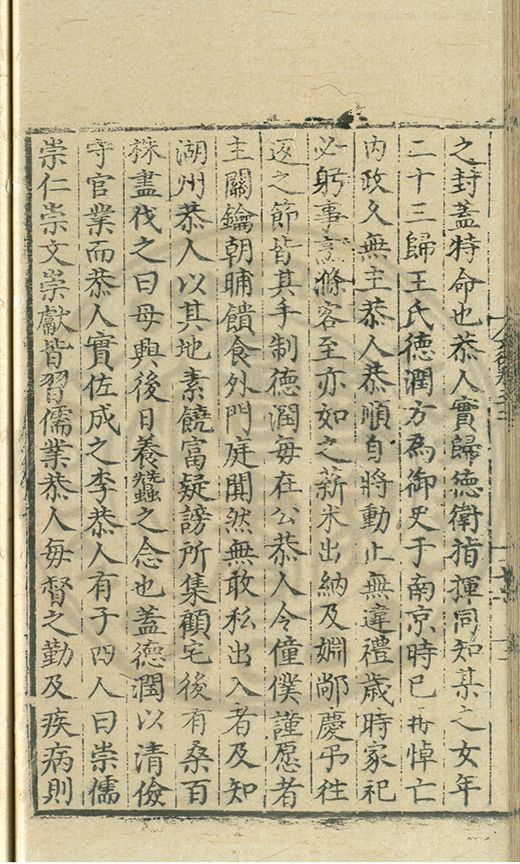 之封蓋特命也恭人實歸德衛指揮同知某之女年
二十三歸王氏德潤方為御史于南京時已再悼亡
內政久無主恭人恭順自將動止無違禮歲時家祀
必躬事烹滌客至亦如之薪米出納及婣鄰慶弔往
返之節皆其手制德潤每在公恭人令僮僕謹愿者
主關鑰朝晡饋食外門庭闃然無敢私出入者及知
湖州恭人以其地素饒富疑謗所集顧宅後有桑百
株盡伐之曰毋興後日養蠶之念也蓋德潤以清儉
守官業而恭人實佐成之李恭人有子四人曰崇儒
崇仁崇文崇獻皆習儒業恭人每督之勤及疾病則